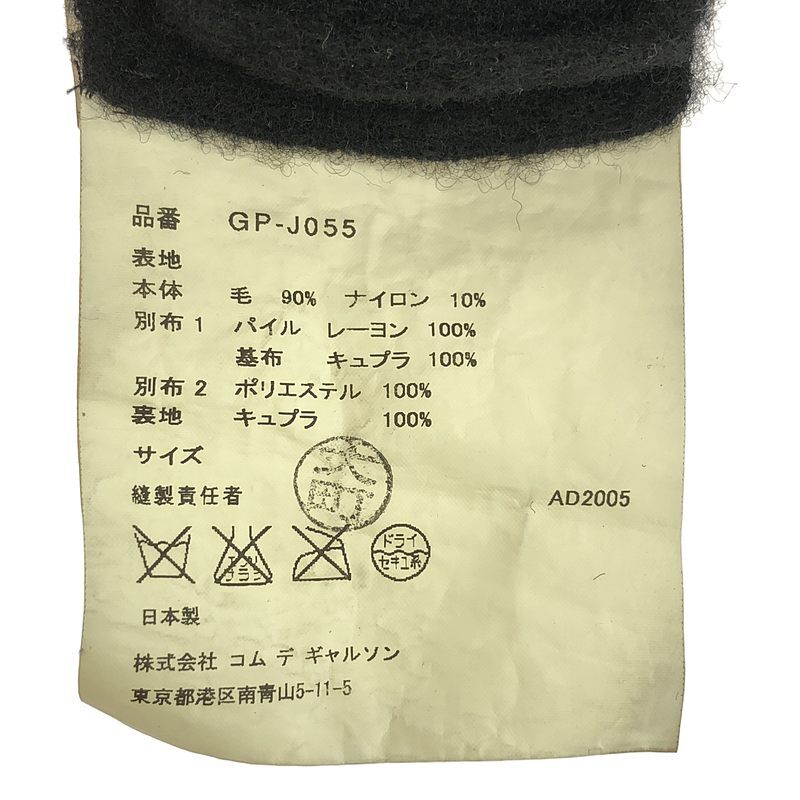 品番 GP-J055
表地
本体 毛 90% ナイロン 10%
別布1 パイル レーヨン 100%
基布 キュプラ 100%
別布2 ポリエステル 100%
裏地 キュプラ 100%
サイズ
縫製責任者
AD2005
エンソ
サラシ
ドライ
セキユ系
日本製
株式会社 コム デ ギャルソン
東京都港区南青山5-11-5